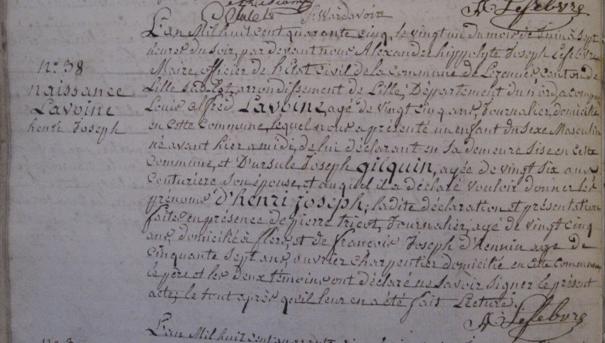 A. Lefebvre
L'an Mil huit cent quarante cinq, le vingt un du mois de Juin à Sept
heures du Soir, par devant nous Alexandre hippolyte Joseph Lefebvre
Maire, officier de l'état Civil de la Commune de Lezennes, Canton de
Lille, arrondissement de Lille, Département du nord, a comparu
Louis alfred Lavoine, agé de vingt cinq ans, Journalier, domicilié
en Cette Commune, lequel nous a présenté un enfant du Sexe Masculin
né avant hier à midi, de lui déclarant en Sa demeure Sise en Cette
Commune, et D'ursule Joseph Gilquin, agée de vingt Six ans
Couturière Son épouse, et auquel il a déclaré vouloir donner les
prénoms d'henri Joseph, la dite déclaration et présentation
faites en présence de pierre tricot, Journalier, agé de vingt cinq
ans, domicilié à flers, et de françois Joseph d'hennin agé de
Cinquante Sept ans, ouvrier Charpentier domicilié en Cette Commune
le père et les deux témoins ont déclaré ne Savoir Signer le présent
acte, le tout après qu'il leur en a été fait Lecture.
A. Lefebvre
n.° 38
naissance
Lavoine
henri Joseph
L'an Mil huit cent quarante